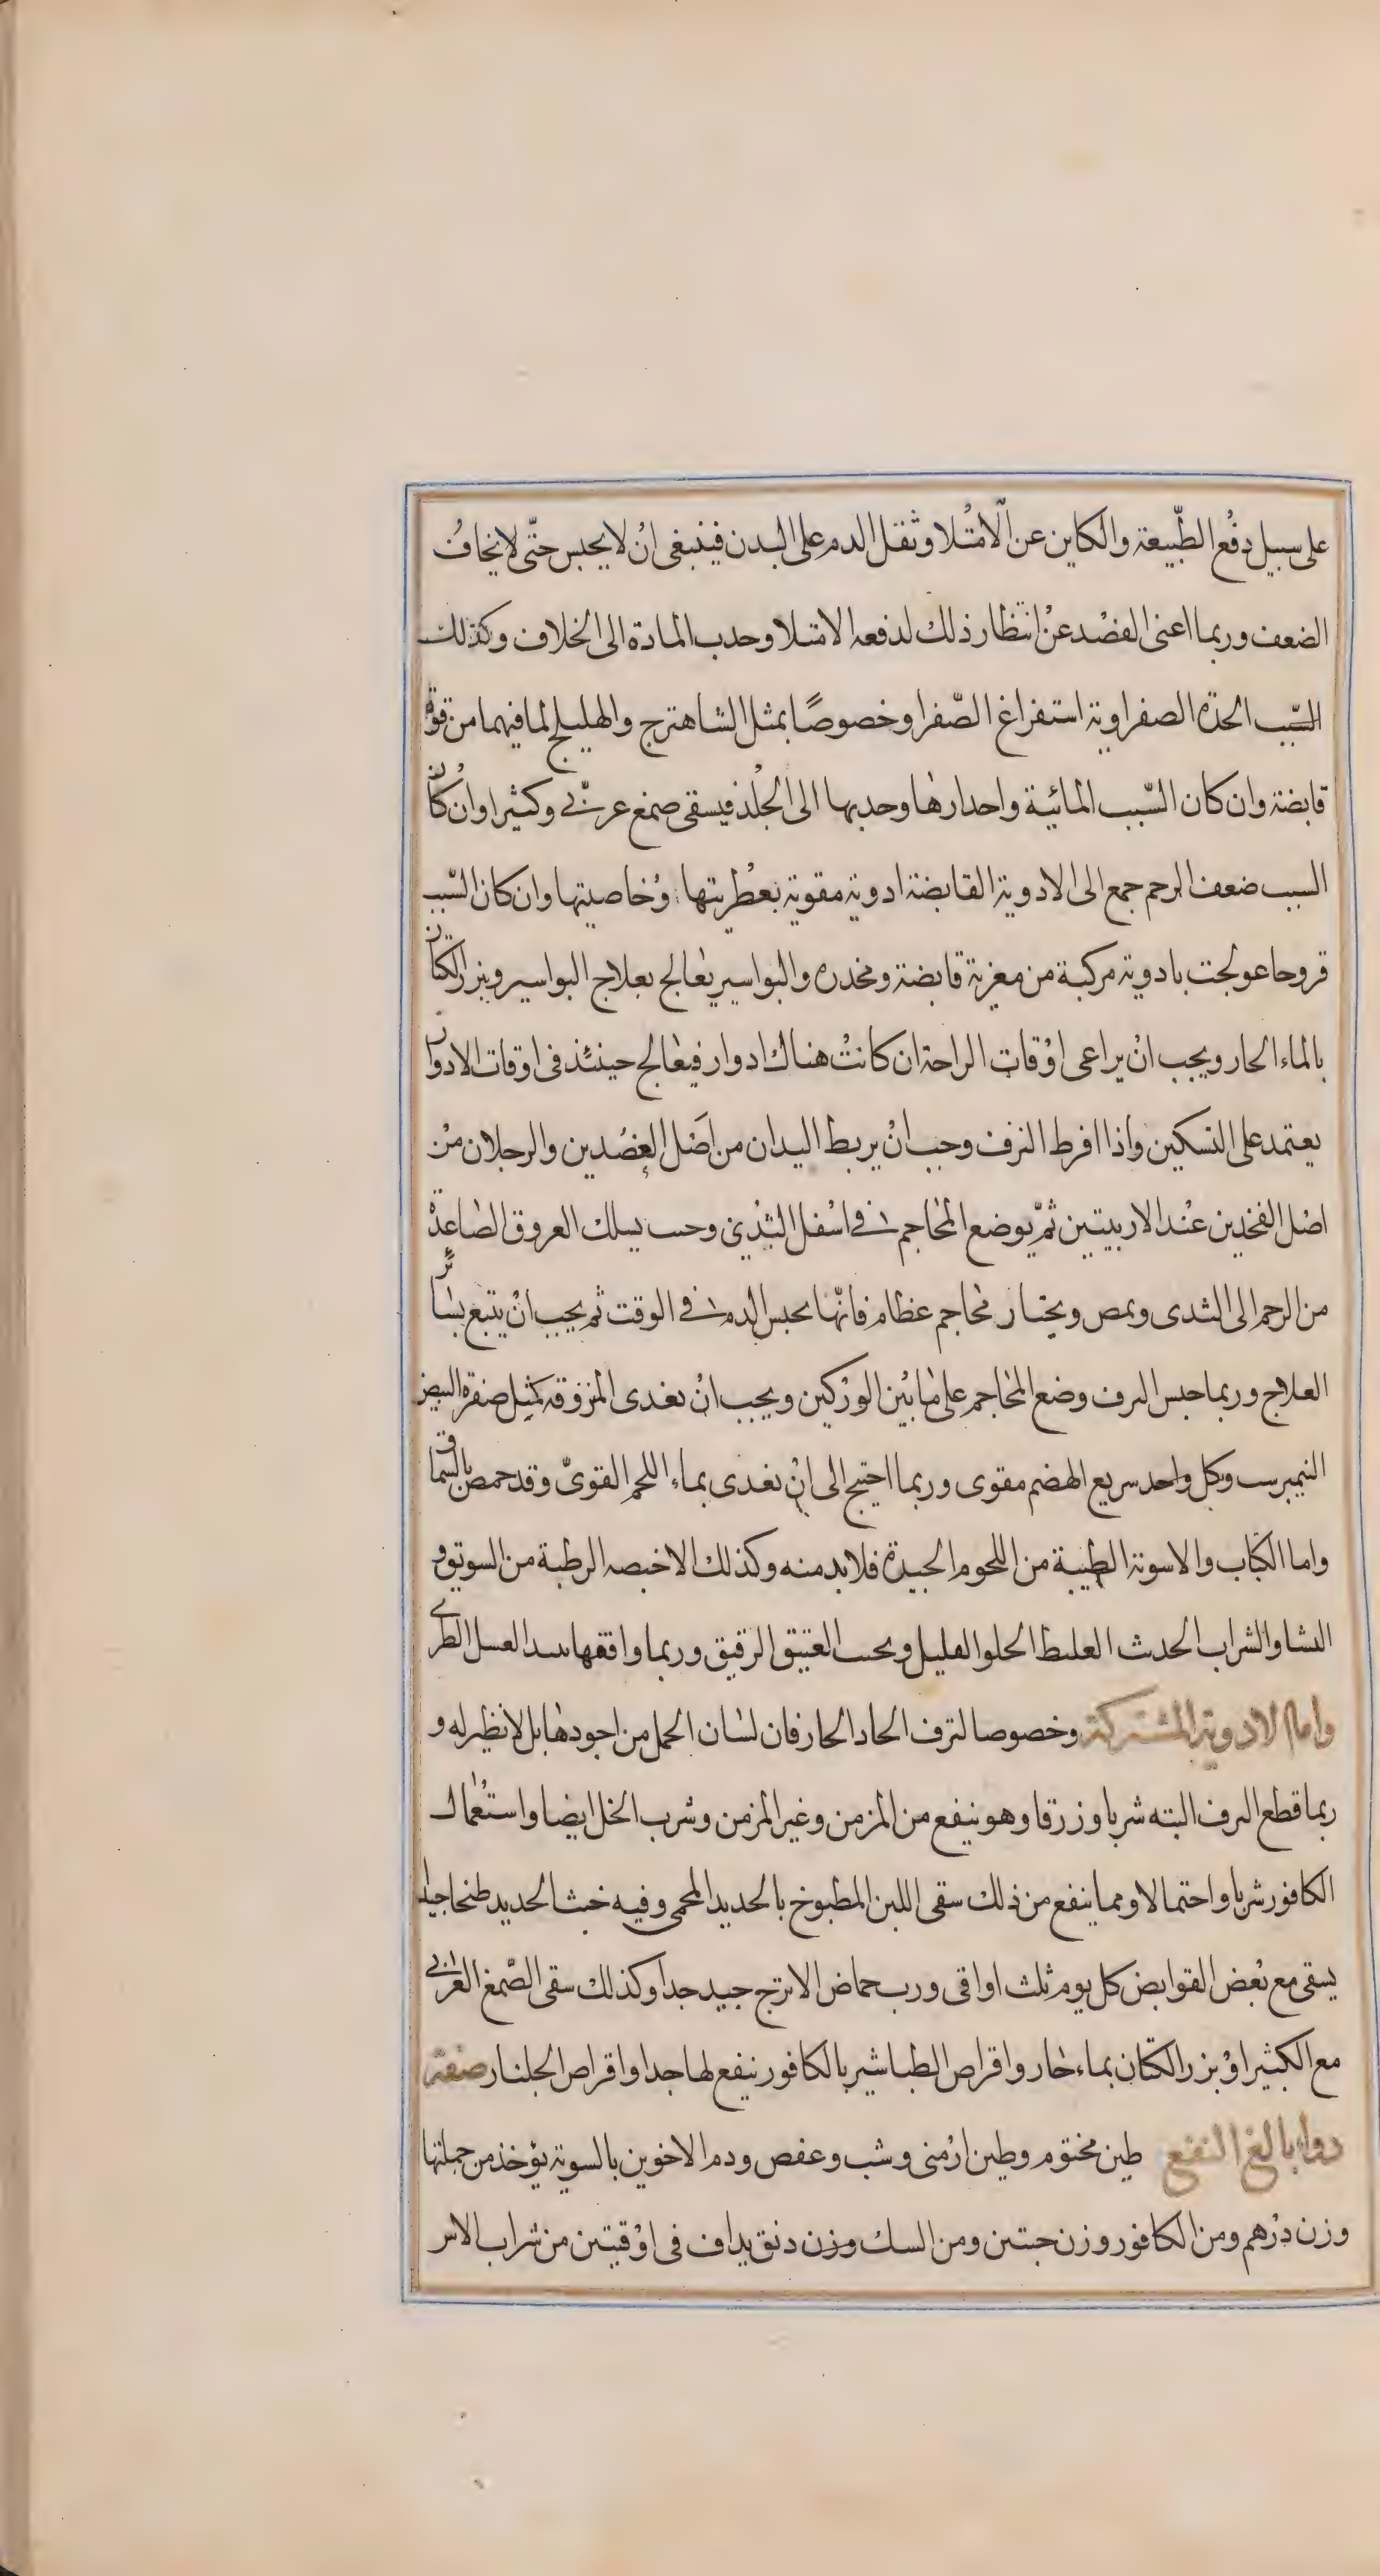 على سبيل دفع الطّبيعة والكاين عن الامتلا وثقل الدم على البدن فينبغى انْ لا يحبس حتّى لا يخاف
الضعف وربما اغنى الفصْد عنْ انتظار ذلك لدفعه الامتلا وحدب المادة الى الخلاف وكذلك
السّبب الحدّة الصفراوية استفراغ الصّفرا وخصوصًا بمثل الشاهترج والهليلج لما فيهما من قوة
قابضة وان كان السّبب المائية واحدارها وحدبها الى الجلد فيسقى صمغ عربى وكثيرا وان كان
السبب ضعف الرحم جمع الى الادوية القابضة ادوية مقوية بعطريتها وخاصيتها وان كان السّبب
قروحا عولجت بادوية مركبة من مغرية قابضة ومخدره والبواسير يعالج بعلاج البواسير وبزر الكتان
بالماء الحار ويجب انْ يراعى اوْقات الراحة ان كانتْ هناك ادوار فيعالج حينئذ فى اوقات الادوار
يعتمد على التسكين واذا افرط النزف وجب انْ يربط اليدان من اصْل العضدين والرجلان منْ
اصْل الفخذين عنْد الاربيتين ثمّ يوضع المحاجم فى اسْفل الثدْى وحسب يسلك العروق الصاعدة
من الرحم الى الثدى ويمص ويختار محاجم عظام فانّها تحبس الدم فى الوقت ثم يجب انْ يتبع بسائر
العلاج وربما حبس النزف وضع المحاجم على ما بيْن الورْكين ويجب انْ تغدى المنزوفة بمثل صفرة البيض
النيمبرست وكل واحد سريع الهضم مقوى وربما احتيج الى انْ تغدى بماء اللحم القوىّ وقد حمص بالسماق
واما الكباب والاسوية الطيبة من اللحوم الجيدة فلا بد منه وكذلك الاخبصه الرطبة من السويق و
النشا والشراب الحدث الغليظ الحلو القليل ويحسب العتيق الرقيق وربما وافقها نبيذ العسل الطرى
واما الادوية المشتركة وخصوصا لنزف الحاد الحار فان لسان الحمل من اجودها بل لا نظير له و
ربما قطع النزف البته شربا وزرقا وهو ينفع من المزمن وغير المزمن وشرب الخل ايضا واستعمال
الكافور شربا واحتمالا ومما ينفع من ذلك سقى اللبن المطبوخ بالحديد المحمى وفيه خبث الحديد طبخا جيدا
يسقى مع بعْض القوابض كل يوم ثلث اواقى ورب حماض الاترج جيد جدا وكذلك سقى الصّمغ العربى
مع الكثيرا وْ بزر الكتان بماء حار واقراص الطباشير بالكافور ينفع لها جدا واقراص الجلنار صفة
دواء بالغ النفع طين مختوم وطين ارْمنى وشب وعفص ودم الاخوين بالسوية يؤخذ من جملتها
وزن درْهم ومن الكافور وزن حبتين ومن السك وزن دنق يداف فى اوْقيتين من شراب الاس